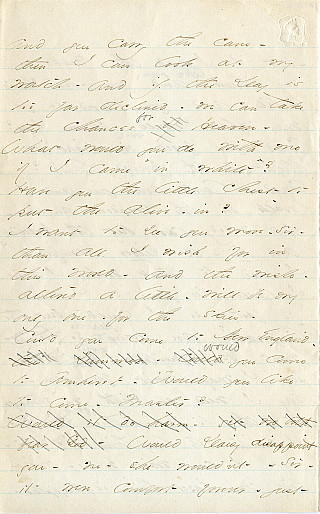 and you carry the cane -
then I can look at my
watch - and if the Day is
too far declined - we can take
the chances for of Heaven -
What would you do with me
if I came "in white"?
Have you the little chest - to
put the alive - in?
I want to see you more - Sir -
than all I wish for in
this world - and the wish -
altered a little - will be my
only one - for the skies -
Could you come to New England -
would you come
to Amherst - Would you like
to come - Master?
Would it do harm - yet we both
fear God - Would Daisy disappoint
you - no - she would'nt - Sir -
it were comfort forever - just